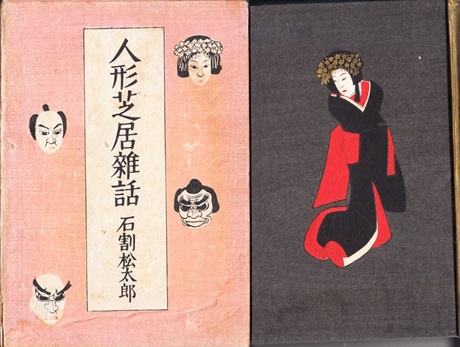 人形芝居雜話
石割松太郎